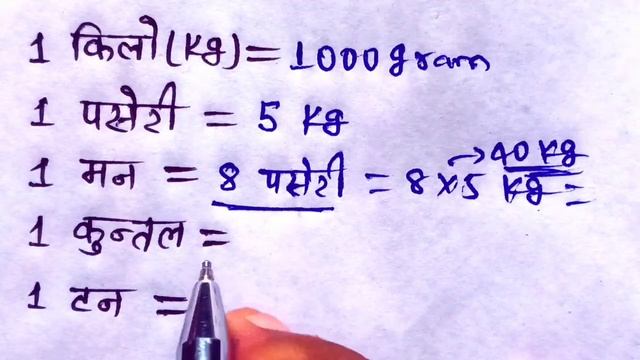 1 किलो (Kg) = 1000 gram
1 पसेरी = 5 Kg
1 मन = 8 पसेरी = 8 x 5 Kg = → 40 Kg
1 कुन्तल =
1 टन =